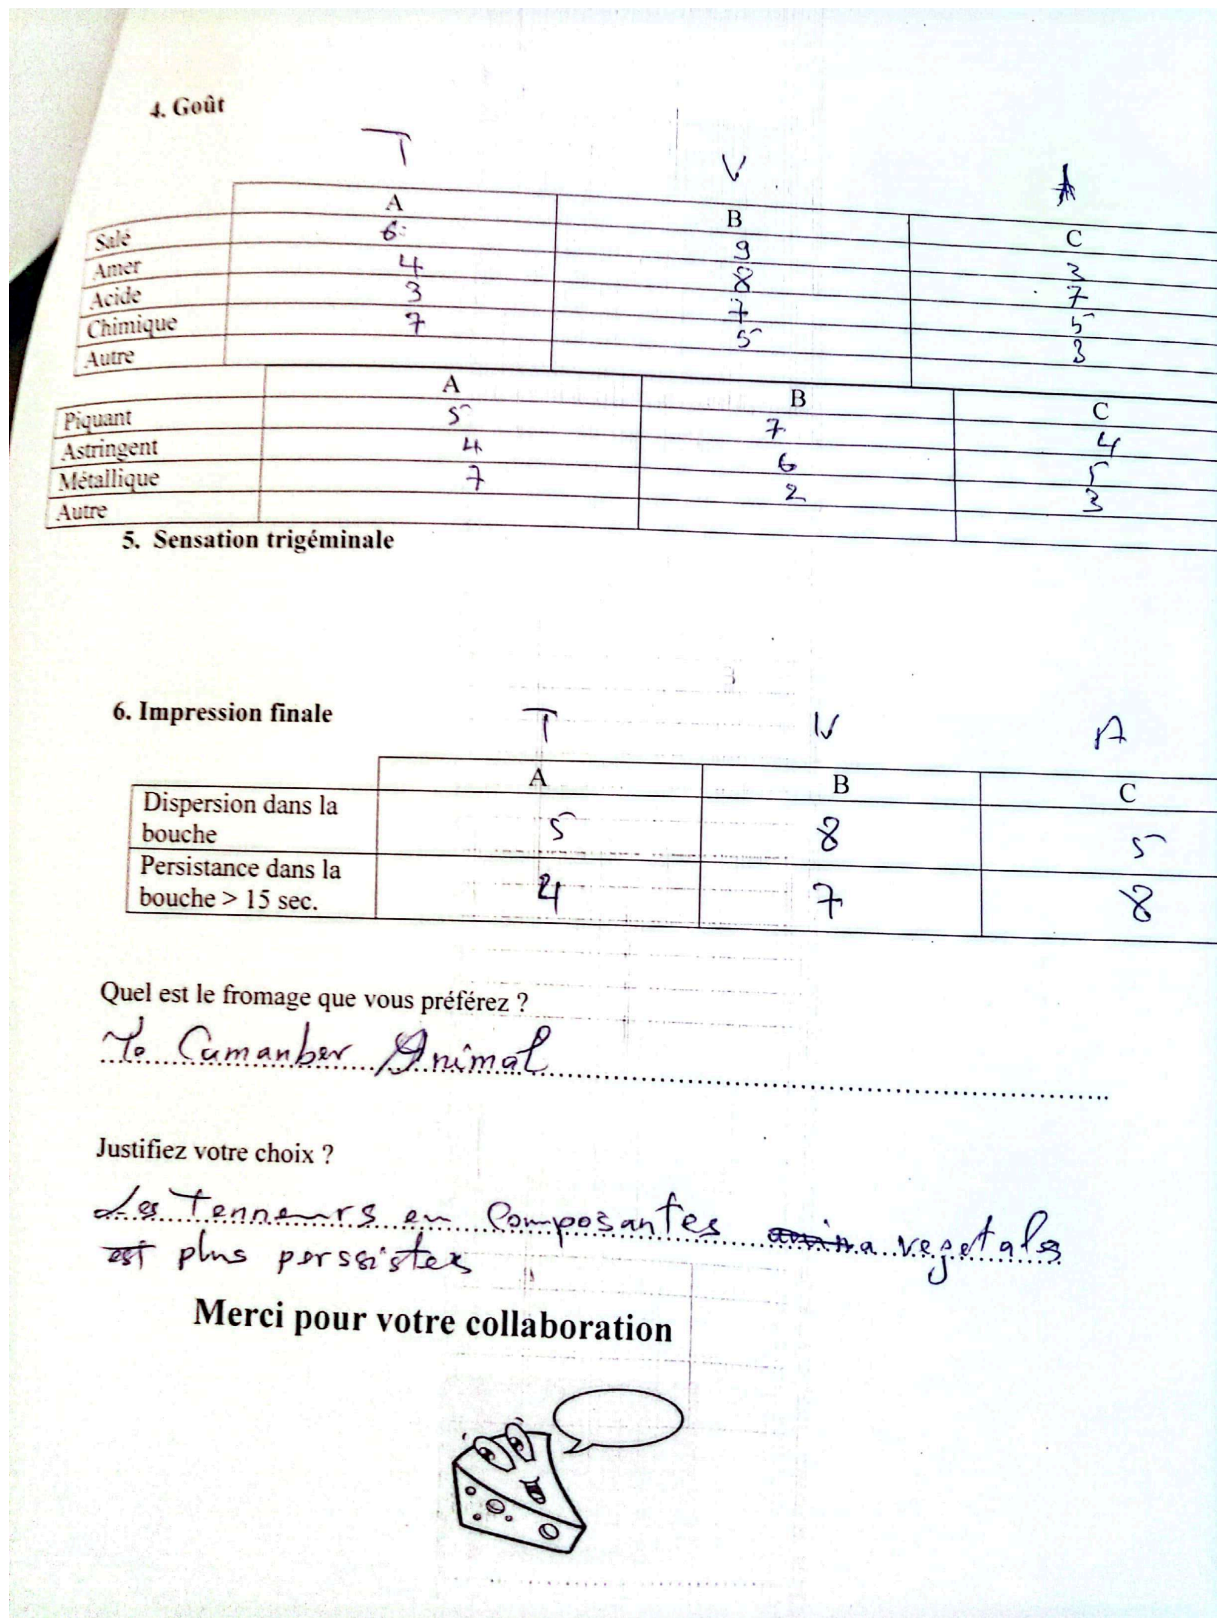 4. Goût
T V A
A B C
Salé 6 9 3
Amer 4 8 7
Acide 3 7 5
Chimique 7 5 3
Autre
A B C
Piquant 5 7 4
Astringent 4 6 5
Métallique 7 2 3
Autre
5. Sensation trigéminale
6. Impression finale
T V A
A B C
Dispersion dans la
bouche 5 8 5
Persistance dans la
bouche > 15 sec. 4 7 8
Quel est le fromage que vous préférez ?
Le Camanber Animal
Justifiez votre choix ?
Les Tenneurs en composantes vegetales
est plus perssistes
Merci pour votre collaboration